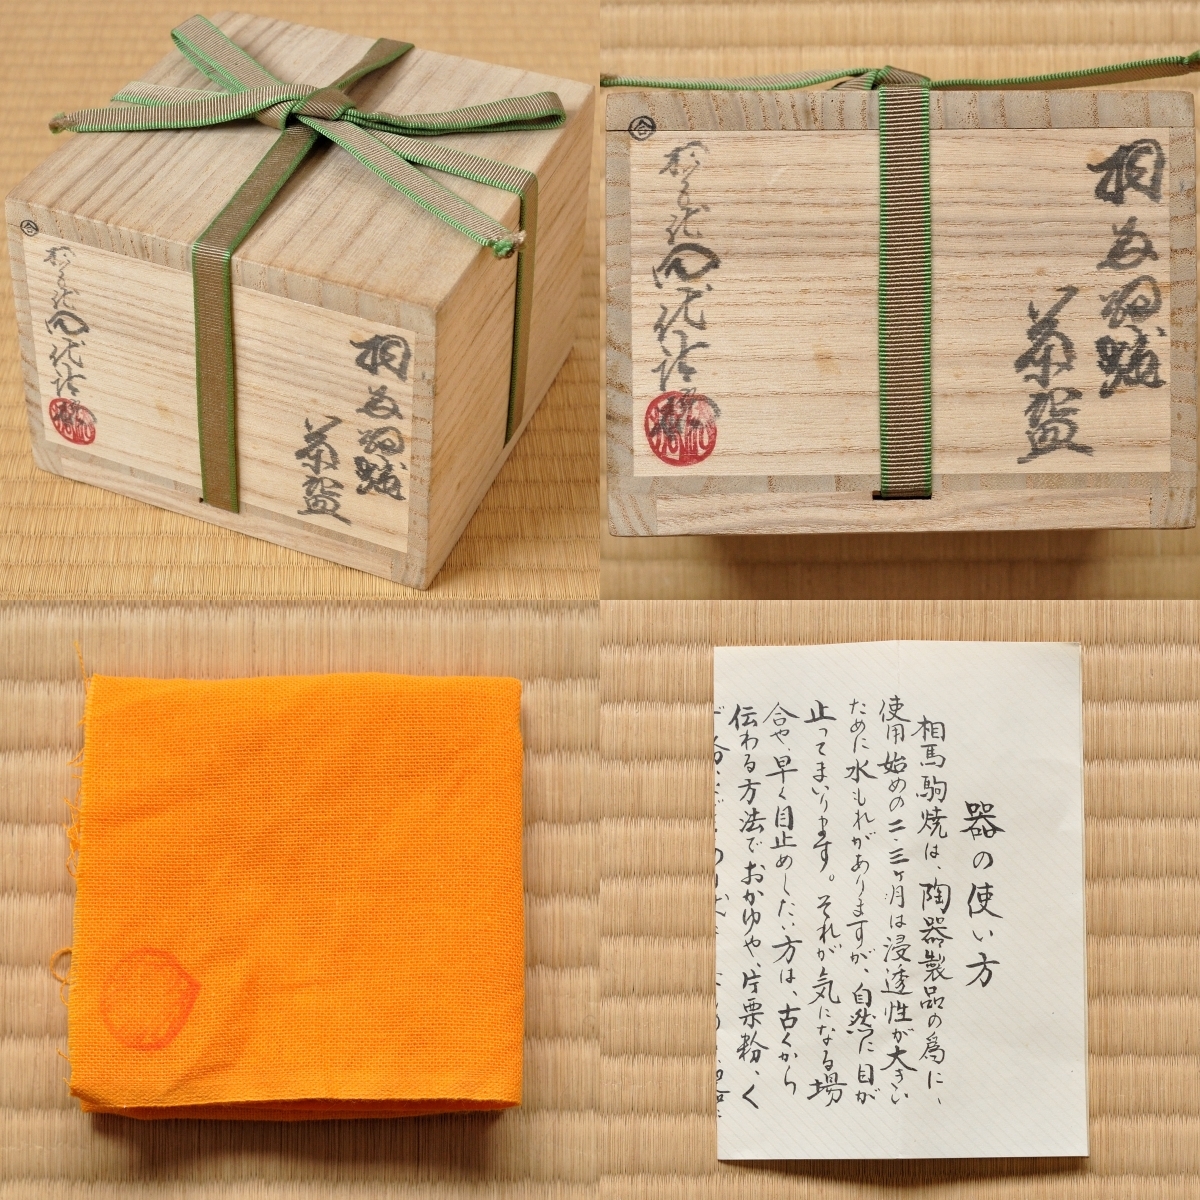 相馬駒焼
茶盌
相馬駒焼
茶盌
器の使い方
相馬駒焼は、陶器製品の為に、
使用始めの二・三ヶ月は浸透性が大きい
ために水もれがありますが、自然に目が
止ってまいります。それが気になる場
合や、早く目止めしたい方は、古くから
伝わる方法でおかゆや、片栗粉、く